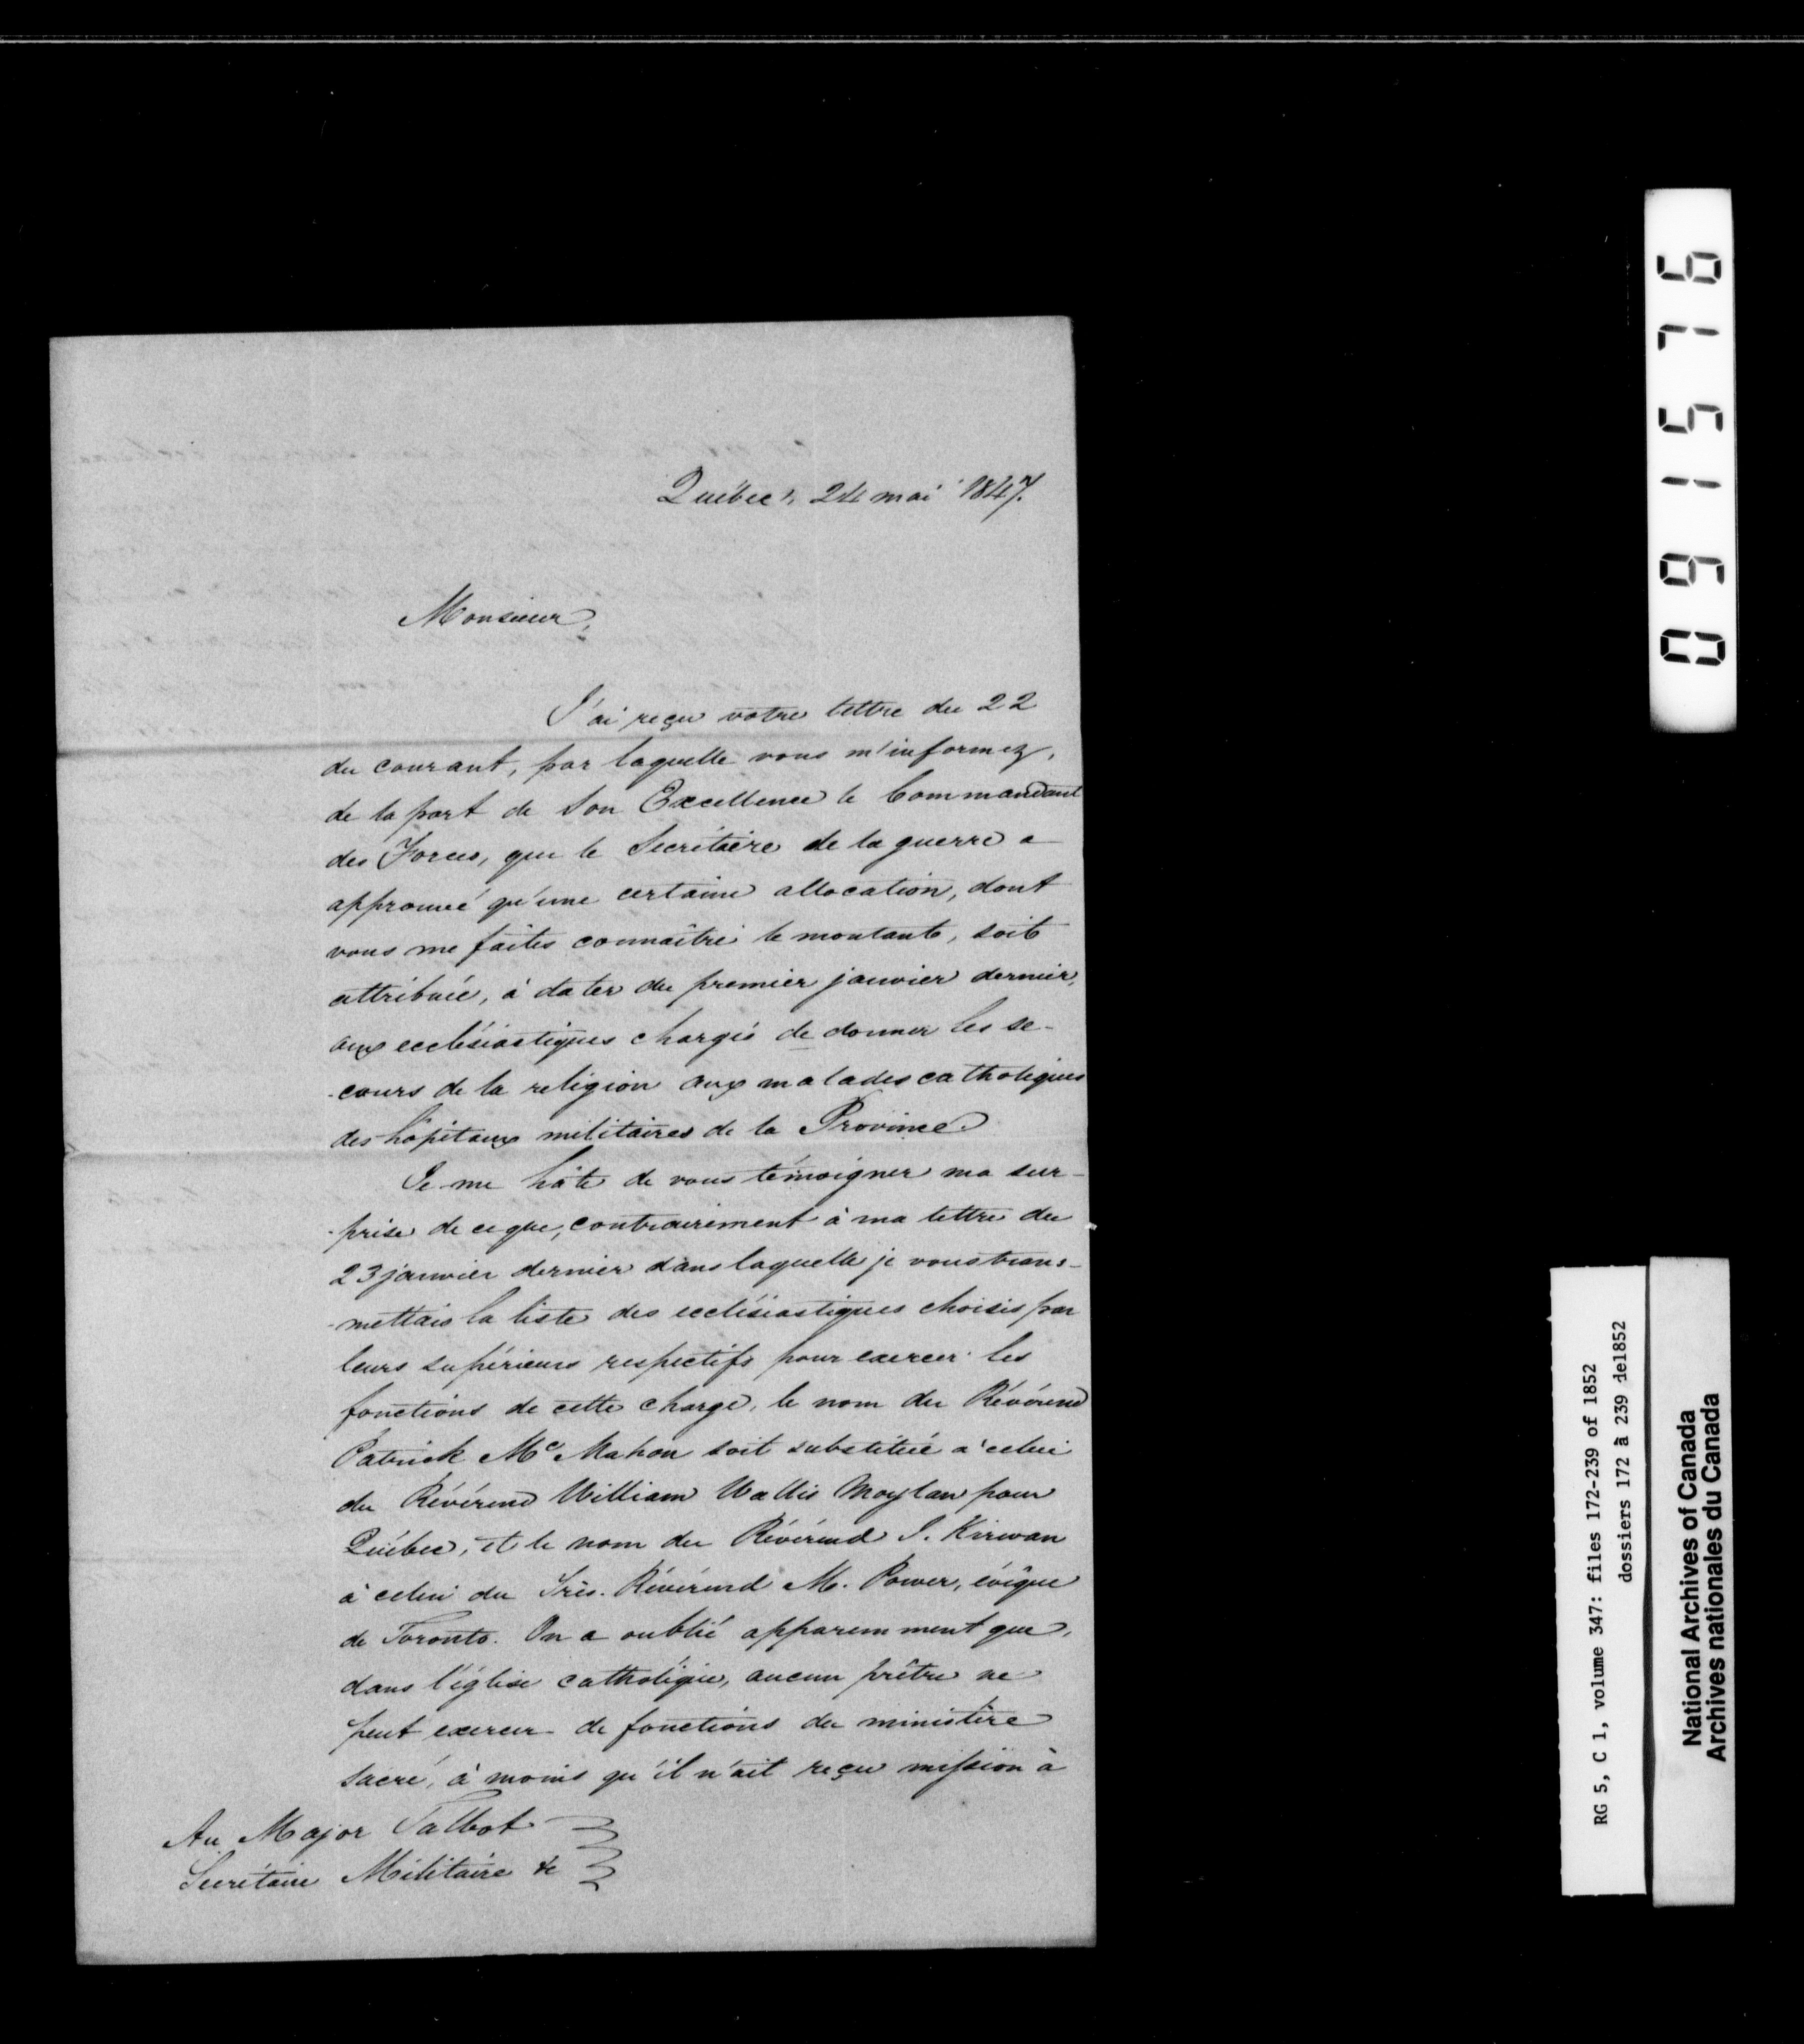 Québec, 24 mai 1847.
Monsieur,
J'ai reçu votre lettre du 22
du courant, par laquelle vous m'informez,
de la part de Son Excellence le Commandant
des Forces, que le Secrétaire de la guerre a
approuvé qu'une certaine allocation, dont
vous me faites connaître le montant, soit
attribuée, à dater du premier janvier dernier,
aux ecclésiastiques chargés de donner les se-
-cours de la religion aux malades catholiques
des hôpitaux militaires de la Province.
Je me hâte de vous témoigner ma sur-
-prise de ce que, contrairement à ma lettre du
23 janvier dernier dans laquelle je vous trans-
-mettais la liste des ecclésiastiques choisis par
leurs supérieurs respectifs pour exercer les
fonctions de cette charge, le nom du Révérend
Patrick McMahon soit substitué à celui
du Révérend William Wallis Moylan pour
Québec, et le nom du Révérend J. Kirwan
à celui du Très-Révérend M. Power, évêque
de Toronto. On a oublié apparemment que,
dans l'église catholique, aucun prêtre ne
peut exercer de fonctions du ministère
sacré, à moins qu'il n'ait reçu mission à
Au Major Talbot
Secrétaire Militaire &c
091576
RG 5, C 1, volume 347: files 172-239 of 1852
dossiers 172 à 239 de1852
National Archives of Canada
Archives nationales du Canada